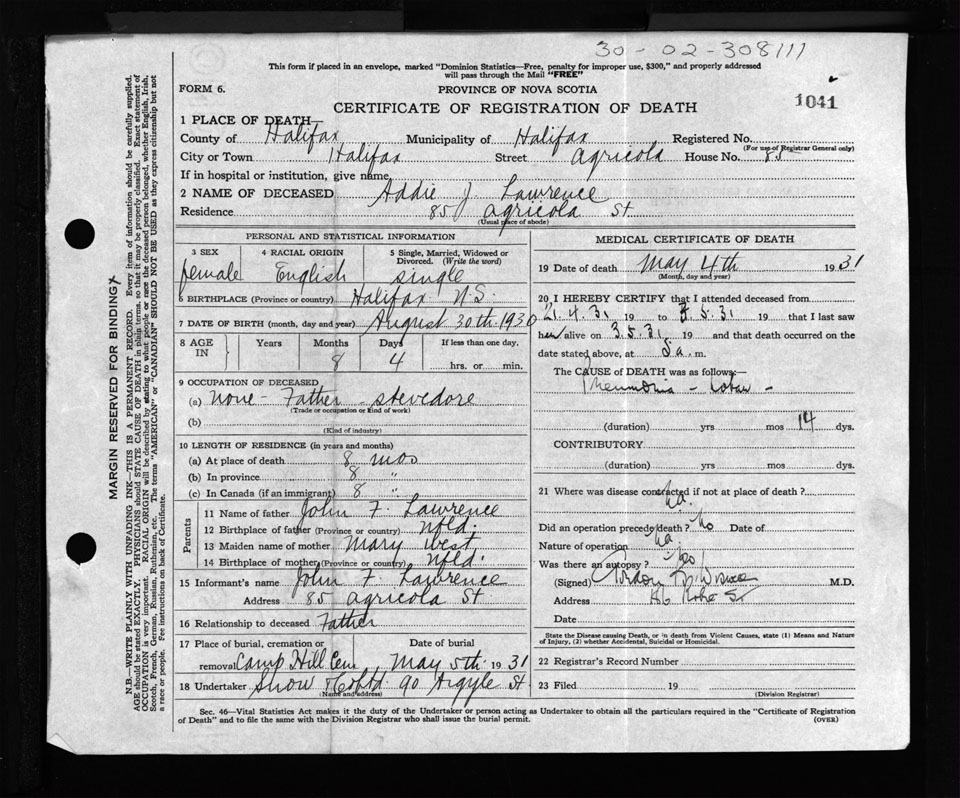 30-02-308111
This form if placed in an envelope, marked "Dominion Statistics—Free, penalty for improper use, $300," and properly addressed
will pass through the Mail "FREE"
FORM 6.
PROVINCE OF NOVA SCOTIA
1041
CERTIFICATE OF REGISTRATION OF DEATH
1 PLACE OF DEATH—
County of Halifax Municipality of Halifax Registered No.
(For use of Registrar General only)
City or Town Halifax Street Agricola House No. 85
If in hospital or institution, give name
2 NAME OF DECEASED Addie J. Lawrence
Residence 85 Agricola St
(Usual place of abode)
PERSONAL AND STATISTICAL INFORMATION
3 SEX 4 RACIAL ORIGIN 5 Single, Married, Widowed or
Divorced. (Write the word)
female English single
6 BIRTHPLACE (Province or country) Halifax N.S.
7 DATE OF BIRTH (month, day and year) August 30th 1930
8 AGE IN Years Months Days If less than one day.
8 4 hrs. or min.
9 OCCUPATION OF DECEASED
(a) none - Father - stevedore
(Trade or occupation or kind of work)
(b)
(Kind of industry)
10 LENGTH OF RESIDENCE (in years and months)
(a) At place of death 8 mos
(b) In province 8 "
(c) In Canada (if an immigrant) 8 "
Parents
11 Name of father John F. Lawrence
12 Birthplace of father (Province or country) Nfld.
13 Maiden name of mother Mary West
14 Birthplace of mother (Province or country) Nfld.
15 Informant's name John F. Lawrence
Address 85 Agricola St
16 Relationship to deceased Father
17 Place of burial, cremation or Date of burial
removal Camp Hill Cem May 5th 1931
18 Undertaker Snow & Co Ltd 90 Argyle St.
(Name and address)
MEDICAL CERTIFICATE OF DEATH
19 Date of death May 4th 1931
(Month, day and year)
20 I HEREBY CERTIFY that I attended deceased from
21.4.31 19 to 5.31 19 that I last saw
her alive on 3.5.31 19 and that death occurred on the
date stated above, at 5 a. m.
The CAUSE OF DEATH was as follows:—
Pneumonia - lobar -
(duration) yrs mos 14 dys.
CONTRIBUTORY
(duration) yrs mos dys.
21 Where was disease contracted if not at place of death?
Did an operation precede death? No Date of
Nature of operation
Was there an autopsy? No
(Signed) Gordon M.D.
Address St
Date
State the Disease causing Death, or in death from Violent Causes, state (1) Means and Nature
of Injury, (2) whether Accidental, Suicidal or Homicidal.
22 Registrar's Record Number
23 Filed 19
(Division Registrar)
Sec. 46—Vital Statistics Act makes it the duty of the Undertaker or person acting as Undertaker to obtain all the particulars required in the "Certificate of Registration
of Death" and to file the same with the Division Registrar who shall issue the burial permit.
(OVER)
MARGIN RESERVED FOR BINDING
N.B.—WRITE PLAINLY WITH UNFADING INK—THIS IS A PERMANENT RECORD. Every item of information should be carefully supplied.
AGE should be stated EXACTLY. PHYSICIANS should STATE CAUSE OF DEATH in plain terms, so that it may be properly classified. Exact statement of
OCCUPATION is very important. RACIAL ORIGIN will be described by stating to what people or race the deceased person belonged, whether English, Irish,
Scotch, French, German, Russian, Ruthenian, etc. The terms "AMERICAN" or "CANADIAN" SHOULD NOT BE USED as they express citizenship but not
a race or people. Fee instructions on back of Certificate.